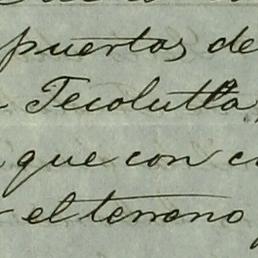 puertos de
Tecolutla
que con
el terreno